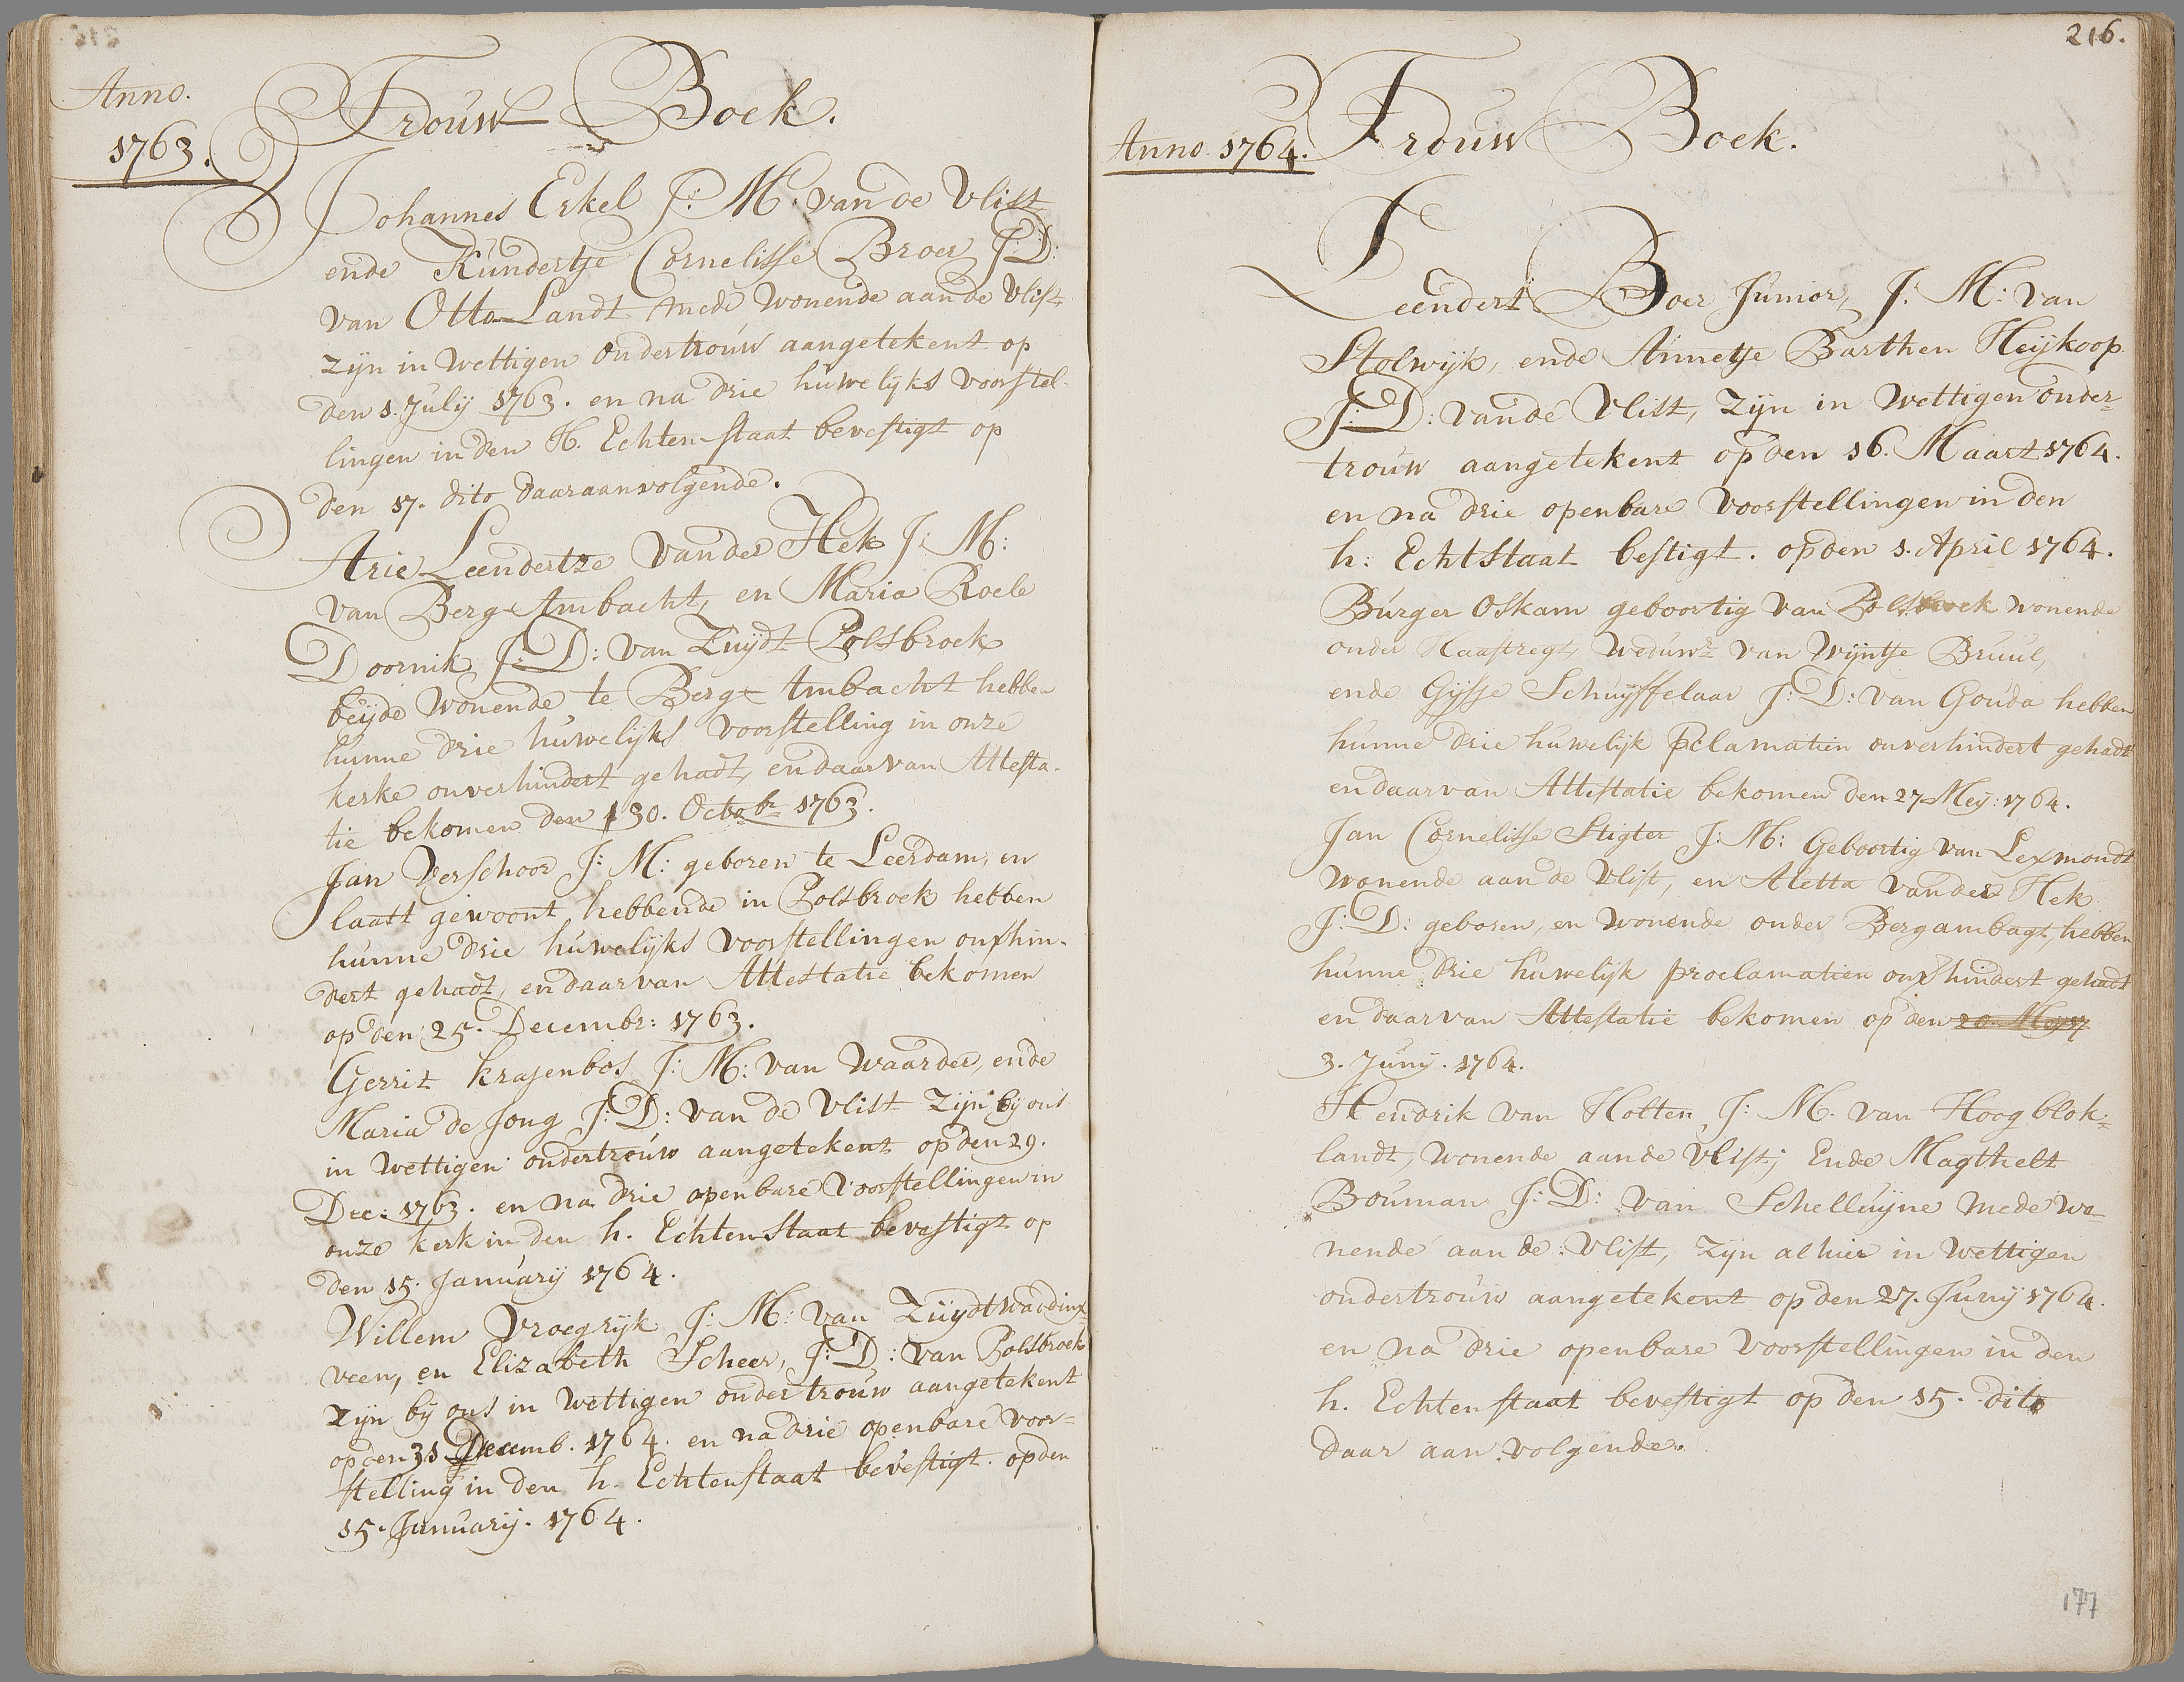 Anno.
1763.
Trouw Boek.
Johannes Erkel J: M: van de Vlist
ende Kundertje Cornelisse Broer J:D:
van Otto Landt mede wonende aan de Vlist
zijn in Wettigen ondertrouw aangetekent op
den 1. Julij 1763. en na drie huwelijks voorstel-
lingen in den H. Echten staat bevestigt op
den 17. dito daaraanvolgende.
Arie Leendertze van der Hek J: M:
van Berg Ambacht, en Maria Roele
Doornik J:D: van Zuydt Polsbroek
beijde wonende te Berg Ambacht hebben
hunne drie huwelijks voorstelling in onze
kerke onverhindert gehadt, en daar van Attesta-
tie bekomen den 30. Octobr 1763.
Jan Verschoor J: M: geboren te Leerdam, en
laatt gewoont hebbende in Polsbroek hebben
hunne drie huwelijks voorstellingen onvhin-
dert gehadt, en daar van Attestatie bekomen
op den 25. Decembr: 1763.
Gerrit Krajenbos J: M: van Waarder, ende
Maria de Jong J:D: van de Vlist zijn bij ons
in Wettigen ondertrouw aangetekent op den 29.
Dec: 1763. en na drie openbare voorstellingen in
onze kerk in den h. Echten Staat bevestigt op
den 15. January 1764.
Willem Vroegrijk J: M: van Zuydtwaddinx
veen, en Elizabeth Scheer, J:D: van Polsbroek
zijn bij ons in Wettigen ondertrouw aangetekent
op den 31 Decemb. 1764. en na drie openbare voor=
stelling in den h. Echtenstaat bevestigt. op den
15. January. 1764.
216.
Anno 1764.
Trouw Boek.
Leendert Boer Junior, J: M: van
Stolwijk, ende Annetje Barthen Heijkoop
J:D: van de Vlist, zijn in Wettigen onder=
trouw aangetekent op den 16. Maart 1764.
en na drie openbare voorstellingen in den
h: EchtStaat bestigt. op den 1. April 1764.
Burger Oskam geboortig van Polsbroek wonende
onder Haastregt, Weduwr van Wijntje Bruul,
ende Gijsje Schuyffelaar J:D: van Gouda hebben
hunne drie huwelijk Pclamatien onverhindert gehadt
en daar van Attestatie bekomen den 27 Mey: 1764.
Jan Cornelisse Stigter J: M: Geboortig van Lexmondt
wonende aan de Vlist, en Aletta van der Hek
J:D: geboren, en wonende onder Bergambagt, hebben
hunne drie huwelijk proclamatien onvhindert gehadt
en daar van Attestatie bekomen op den
3. Junij. 1764.
Hendrik van Holten J: M. van Hoog blok=
landt, wonende aan de Vlist; Ende Magthelt
Bouman J:D: van Schelluyne mede wo=
nende aan de Vlist, zijn alhier in Wettigen
ondertrouw aangetekent op den 27. Junij 1764.
en na drie openbare voorstellingen in den
h. Echten staat bevestigt op den 15. dito
daar aan volgende.
177